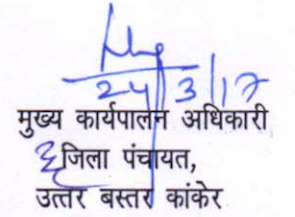 24/3/17
मुख्य कार्यपालन अधिकारी
जिला पंचायत,
उत्तर बस्तर कांकेर